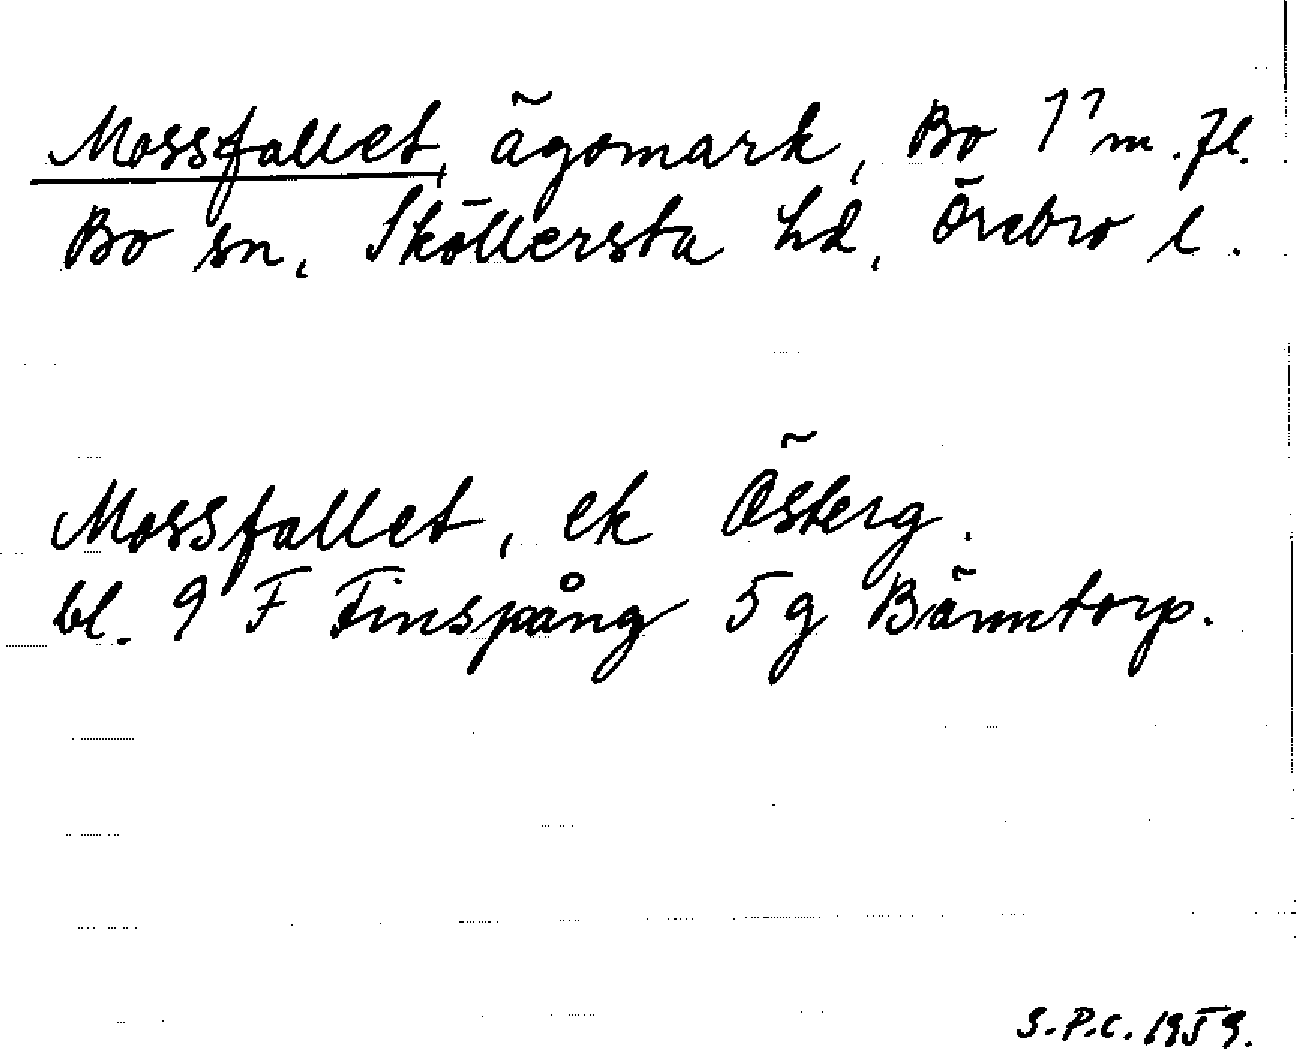 Mossfallet, ägomark, Bo 1⁷ m. fl.
Bo sn, Sköllersta hd, Örebro l.
Mossfallet, ek Österg.
bl. 9 F Finspång 5 g Bänntorp.
S.P.C. 1959.